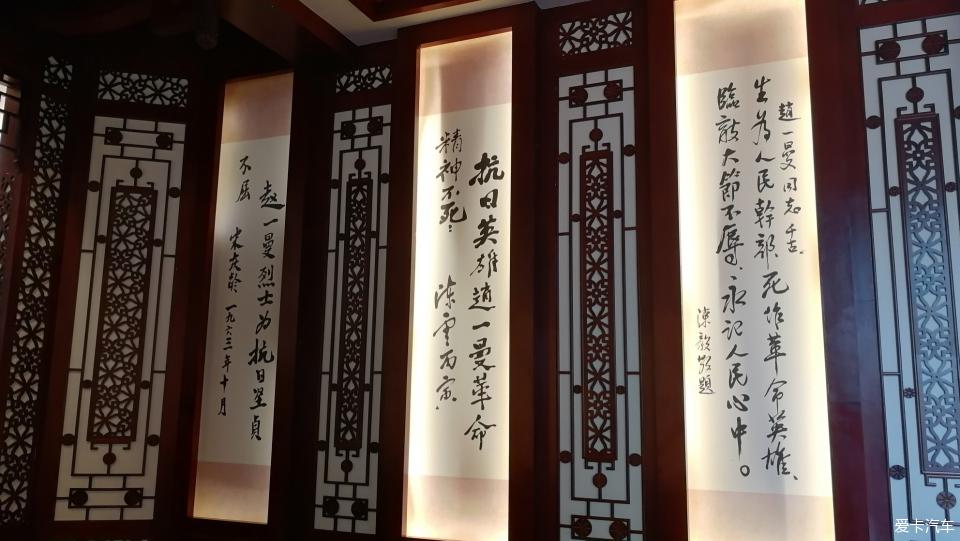 趙一曼同志千古
生為人民幹部死作革命英雄、
臨敵大節不辱、永記人民心中。
陳毅敬題
抗日英雄趙一曼革命
精神不死
陳雲丙寅
赵一曼烈士为抗日坚贞
不屈
宋庆龄 一九六三年十月
爱卡汽车